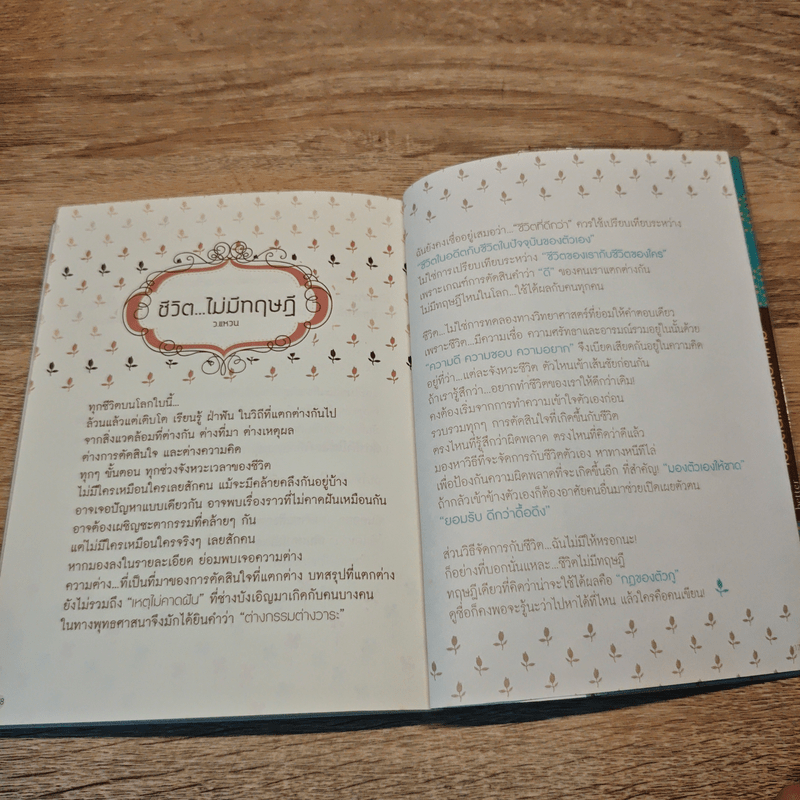 ชีวิต...ไม่มีทฤษฎี
ว.แหวน
ทุกชีวิตบนโลกใบนี้...
ล้วนแล้วแต่เติบโต เรียนรู้ ฝ่าฟัน ในวิถีที่แตกต่างกันไป
จากสิ่งแวดล้อมที่ต่างกัน ต่างที่มา ต่างเหตุผล
ต่างการตัดสินใจ และต่างความคิด
ทุกๆ ขั้นตอน ทุกช่วงจังหวะเวลาของชีวิต
ไม่มีใครเหมือนใครเลยสักคน แม้จะมีคล้ายคลึงกันอยู่บ้าง
อาจเจอปัญหาแบบเดียวกัน อาจพบเรื่องราวที่ไม่คาดฝันเหมือนกัน
อาจต้องเผชิญชะตากรรมที่คล้ายๆ กัน
แต่ไม่มีใครเหมือนใครจริงๆ เลยสักคน
หากมองลงในรายละเอียด ย่อมพบเจอความต่าง
ความต่าง...ที่เป็นที่มาของการตัดสินใจที่แตกต่าง บทสรุปที่แตกต่าง
ยังไม่รวมถึง "เหตุไม่คาดฝัน" ที่ช่างบังเอิญมาเกิดกับคนบางคน
ในทางพุทธศาสนาจึงมักได้ยินคำว่า "ต่างกรรมต่างวาระ"
8
ฉันยังคงเชื่ออยู่เสมอว่า..."ชีวิตที่ดีกว่า" ควรใช้เปรียบเทียบระหว่าง
"ชีวิตในอดีตกับชีวิตในปัจจุบันของตัวเอง"
ไม่ใช่การเปรียบเทียบระหว่าง "ชีวิตของเรากับชีวิตของใคร"
เพราะเกณฑ์การตัดสินคำว่า "ดี" ของคนเราแตกต่างกัน
ไม่มีทฤษฎีไหนในโลก...ใช้ได้ผลกับคนทุกคน
ชีวิต...ไม่ใช่การทดลองทางวิทยาศาสตร์ที่ย่อมให้คำตอบเดียว
เพราะชีวิต...มีความเชื่อ ความศรัทธาและอารมณ์รวมอยู่ในนั้นด้วย
"ความดี ความชอบ ความอยาก" จึงเบียดเสียดกันอยู่ในความคิด
อยู่ที่ว่า...แต่ละจังหวะชีวิต ตัวไหนเข้าเส้นชัยก่อนกัน
ถ้าเรารู้สึกว่า...อยากทำชีวิตของเราให้ดีกว่าเดิม!
คงต้องเริ่มจากการทำความเข้าใจตัวเองก่อน
รวบรวมทุกๆ การตัดสินใจที่เกิดขึ้นกับชีวิต
ตรงไหนที่รู้สึกว่าผิดพลาด ตรงไหนที่คิดว่าดีแล้ว
มองหาวิธีที่จะจัดการกับชีวิตตัวเอง หาทางหนีทีไล่
เพื่อป้องกันความผิดพลาดที่จะเกิดขึ้นอีก ที่สำคัญ! "มองตัวเองให้ขาด"
ถ้ากลัวเข้าข้างตัวเองก็ต้องอาศัยคนอื่นมาช่วยเปิดเผยตัวตน
"ยอมรับ ดีกว่าดื้อดึง"
ส่วนวิธีจัดการกับชีวิต...ฉันไม่มีให้หรอกนะ!
ก็อย่างที่บอกนั่นแหละ...ชีวิตไม่มีทฤษฎี
ทฤษฎีเดียวที่คิดว่าน่าจะใช้ได้ผลคือ "กฎของตัวกู"
ดูชื่อก็คงพอจะรู้นะว่าไปหาได้ที่ไหน แล้วใครคือคนเขียน!